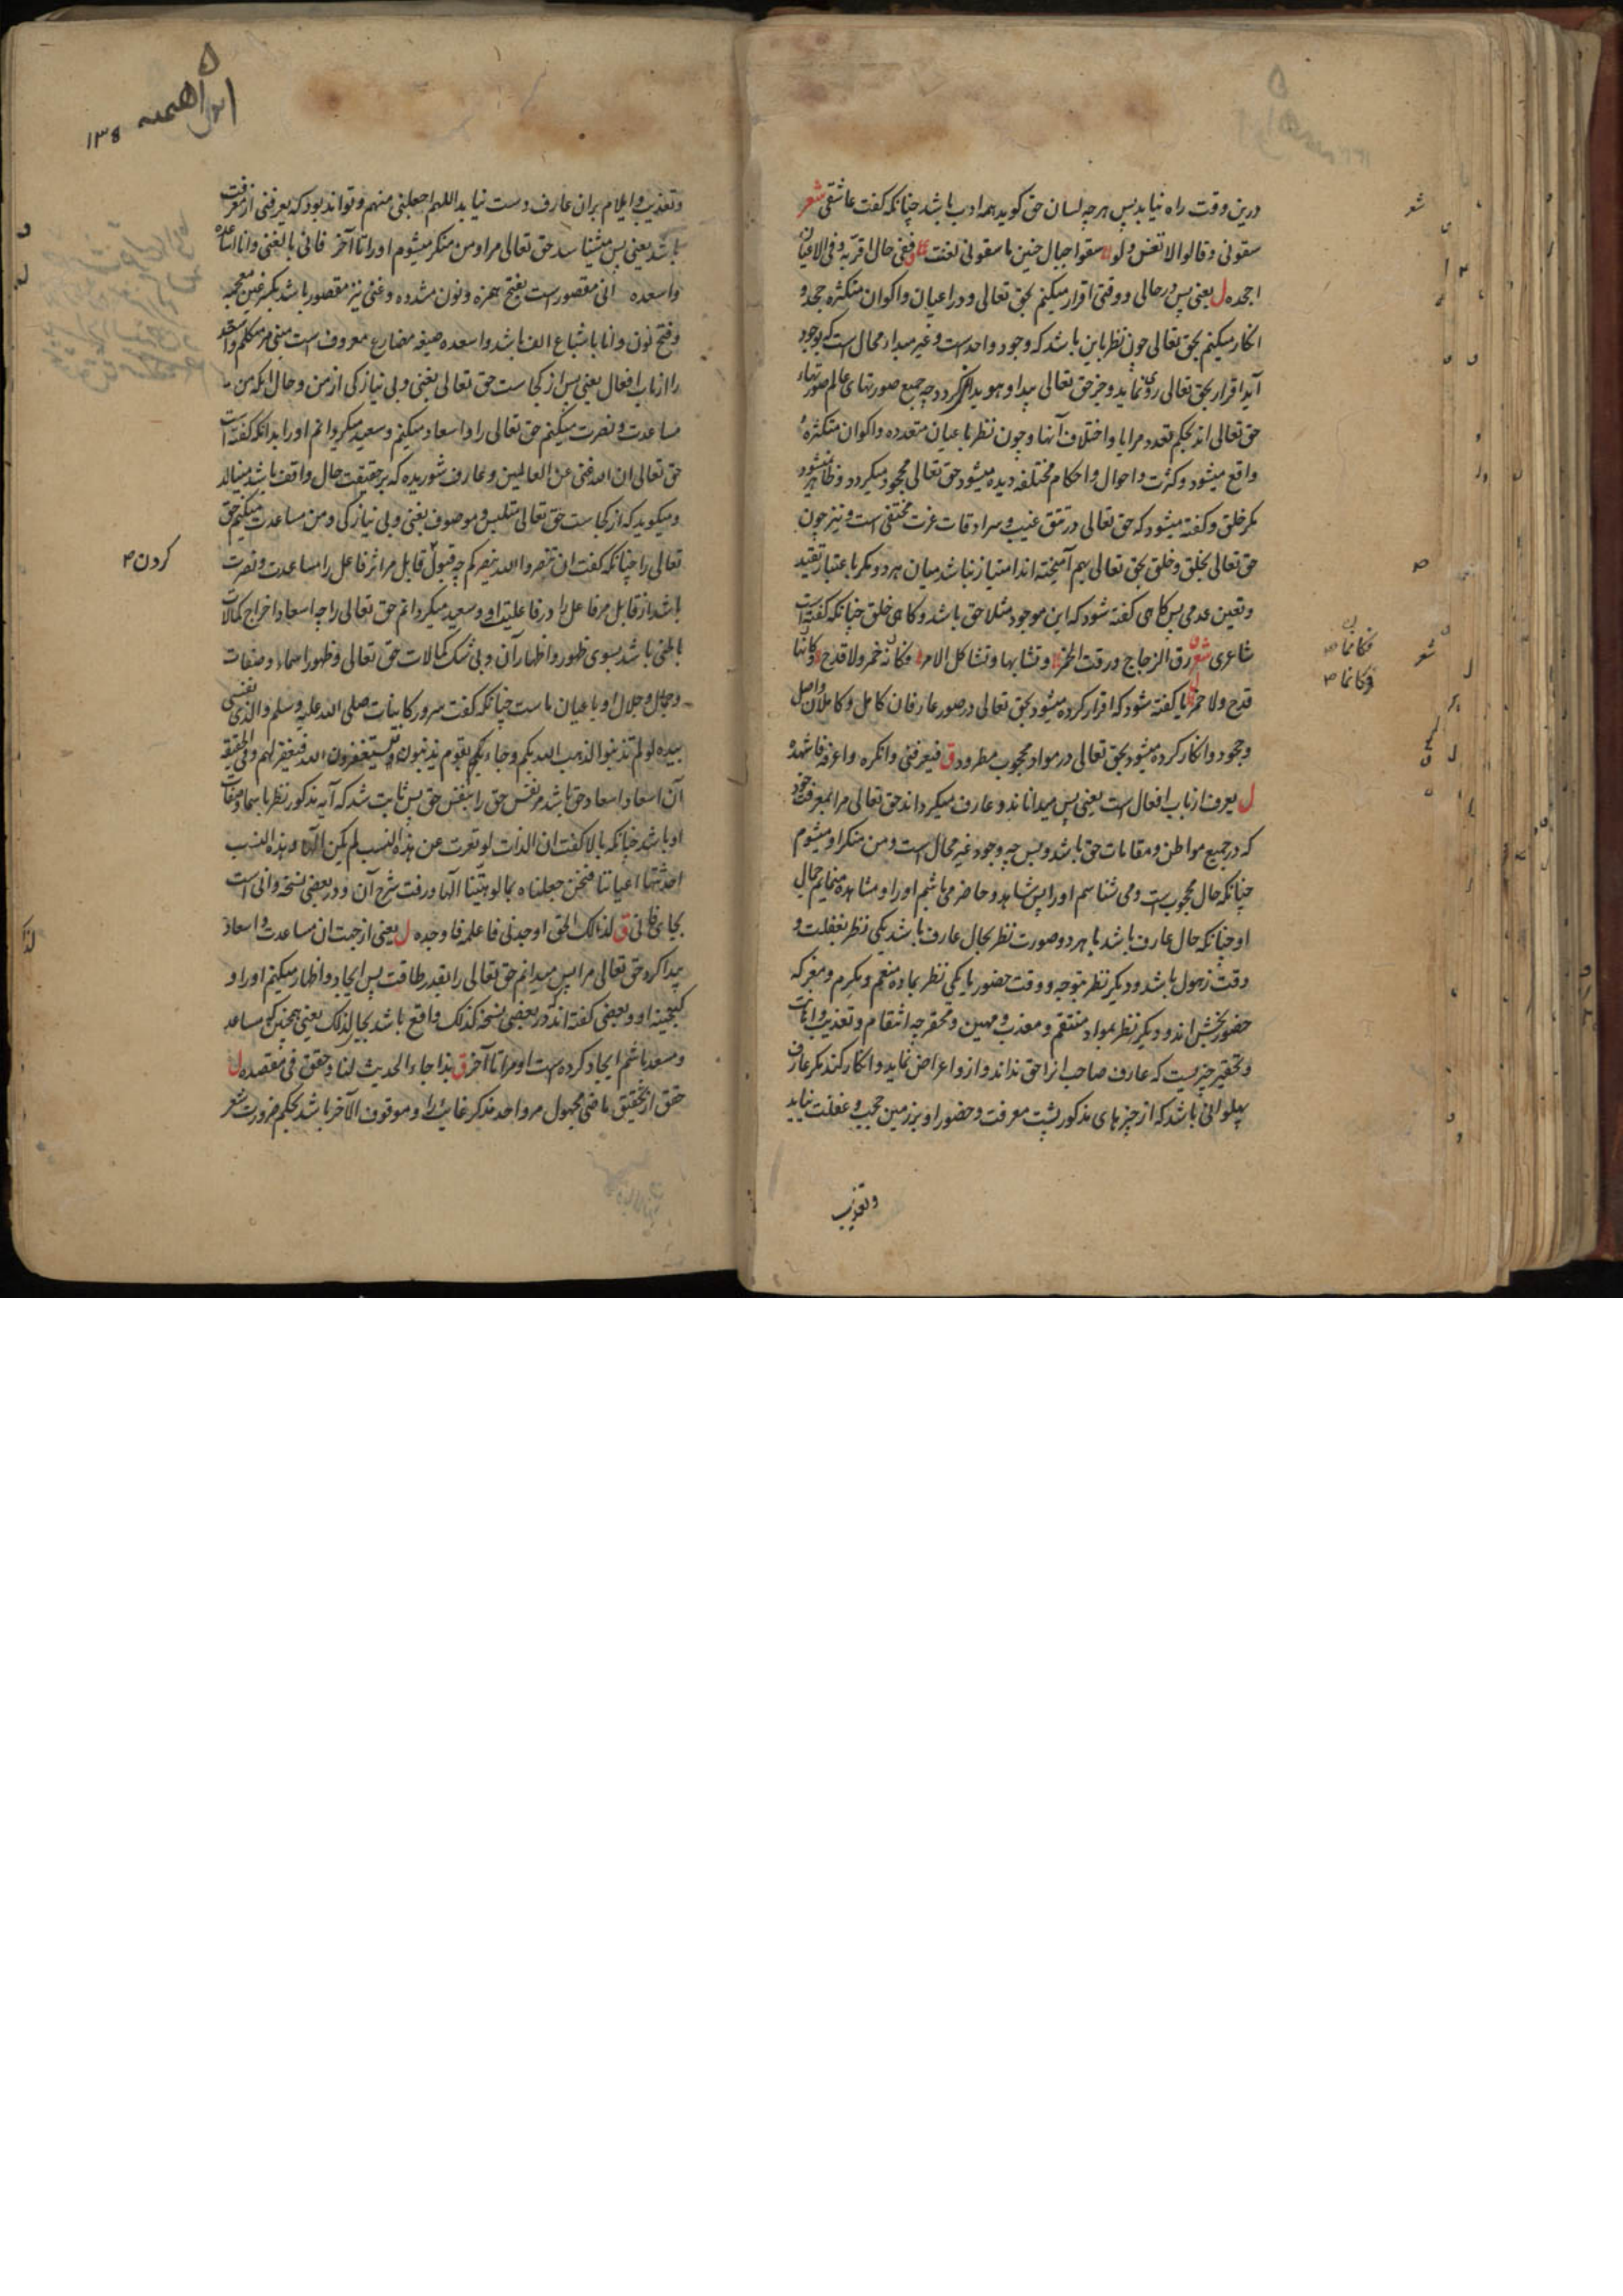 درین وقت راه نیابد پس هرچه لسان حق گوید همه ادب باشد چنانکه گفت عاشقی شعر
سقونی و قالوا لا تغن و لو سقوا جبال حنین ما سقونی لغنت ففی حال اقر به و فی الاعیان
اجحده ل یعنی پس در حالی و وقتی اقرار میکنم بحق تعالی و در اعیان و اکوان متکثره جحد و
انکار میکنم بحق تعالی چون نظر باین باشد که وجود واحد است و غیر مبدا و محال است که بوجود
آید اقرار بحق تعالی روی نماید و جز حق تعالی پیدا و هویدا نگردد چه جمیع صورتهای عالم صورتهاء
حق تعالی اند بحکم تعدد مرایا و اختلاف آنها و چون نظر باعیان متعدده و اکوان متکثره
واقع میشود و کثرت و احوال و احکام مختلفه دیده میشود حق تعالی مجحود میگردد و ظاهر نمیشود
مگر خلق و گفته میشود که حق تعالی در تتق غیب و سرادقات عزت مختفی است و نیز چون
حق تعالی بخلق و خلق بحق تعالی بهم آمیخته اند امتیاز نباشد میان هر دو مگر باعتبار تقید
و تعین عدمی پس گاهی گفته شود که این موجود مثلا حق باشد و گاهی خلق چنانکه گفته است
شاعری شعر رق الزجاج و رقت الخمر و تشابها و تشاکل الامر فکانه خمر و لا قدح و کانها
قدح و لا خمر یا گفته شود که اقرار کرده میشود بحق تعالی در صور عارفان کامل و کاملان واصل
و جحود و انکار کرده میشود بحق تعالی در مواد محجوب مطرود ق فیعرفنی و انکره و اعرفه فاشهده
ل یعرف از باب افعال است یعنی پس میداناند و عارف میگرداند حق تعالی مرا بمعرفت خود
که در جمیع مواطن و مقامات حق باشد و بس چه وجود غیر محال است و من منکر او میشوم
چنانکه حال محجوب است و می شناسم او را پس شاهد و حاضر می باشم او را و مشاهده مینمایم جمال
او چنانکه حال عارف باشد یا هر دو صورت نظر بحال عارف باشد یکی نظر بغفلت و
وقت ذهول باشد و دیگر نظر بتوجه و وقت حضور یا یکی نظر بماده منعم و مکرم و معز که
حضور بخش اند و دیگر نظر بمواد منتقم و معذب و مهین و محقر چه انتقام و تعذیب و اهانت
و تحقیر چیزیست که عارف صاحب انرا حق نداند و ازو اعراض نماید و انکار کند مگر عارف
پهلوانی باشد که از چیزهای مذکور پشت معرفت و حضور او بر زمین حجب و غفلت نیاید
و تعذیب
شعر
فکانما
وکانما
شعر
۱۳۸
و تعذیب و ایلام بران عارف دست نیابد اللهم اجعلنی منهم و تواند بود که یعرفنی از معرفت
باشد یعنی پس میشناسد حق تعالی مرا و من منکر میشوم او را تا آخر فانی بالغنی و انا اساعده
و اسعده انی مقصور است بفتح همزه و نون مشدده و غنی نیز مقصور باشد بکسر غین معجمه
و فتح نون و انا باشباع الف باشد و اسعده صیغه مضارع معروف است مبنی مر متکلم واحد
را از باب افعال یعنی پس از کجاست حق تعالی بغنی و بی نیازکی از من و حال آنکه من
مساعدت و نصرت میکنم حق تعالی را و اسعاد میکنم و سعید میگردانم او را بدانکه گفته است
حق تعالی ان الله غنی عن العالمین و عارف شوریده که بر حقیقت حال واقف باشد مینالد
و میگوید که از کجاست حق تعالی متلبس و موصوف بغنی و بی نیازکی و من مساعدت میکنم حق
تعالی را چنانکه گفت ان تنصروا الله ینصرکم چه قبول قابل مر اثر فاعل را مساعدت و نصرت
باشد از قابل مر فاعل را در فاعلیت او و سعید میگردانم حق تعالی را چه اسعاد اخراج کمالات
باطنی باشد بسوی ظهور و اظهار آن و بی شک کمالات حق تعالی و ظهور اسماء و صفات
و جمال و جلال او باعیان ماست چنانکه گفت سرور کاینات صلی الله علیه و سلم والذی نفسی
بیده لو لم تذنبوا لذهب الله بکم و جاء بکم بقوم یذنبون و یستغفرون الله فیغفر لهم و فی الحقیقه
آن اسعاد اسعاد حق باشد مر نفس حق را بنفس حق پس ثابت شد که آیه مذکور نظر باسما و صفات
او باشد چنانکه بالا گفت ان الذات لو تعرت عن هذه النسب لم یکن الها و هذه النسب
احدثتها اعیاننا فنحن جعلناه بمالوهیتنا الها و رفت شرح آن و در بعضی نسخه وانی است
بجای فانی ق لذلک الحق اوجدنی فاعلمه فاوجده ل یعنی از جهت ان مساعدت و اسعاد
پیدا کرد حق تعالی مرا پس میدانم حق تعالی را بقدر طاقت پس ایجاد و اظهار میکنم او را و
گنجینه او و بعضی گفته اند در بعضی نسخه کذلک واقع باشد بجای لذلک یعنی همچنین که مساعد
و مسعد باشم ایجاد کرده است او مرا تا آخر ق بذا جاء الحدیث لنا و حقق فی مقصده ل
حقق از تحقیق ماضی مجهول مر واحد مذکر غایب را و موقوف الآخر باشد بحکم ضرورت شعر
کردن
لذا